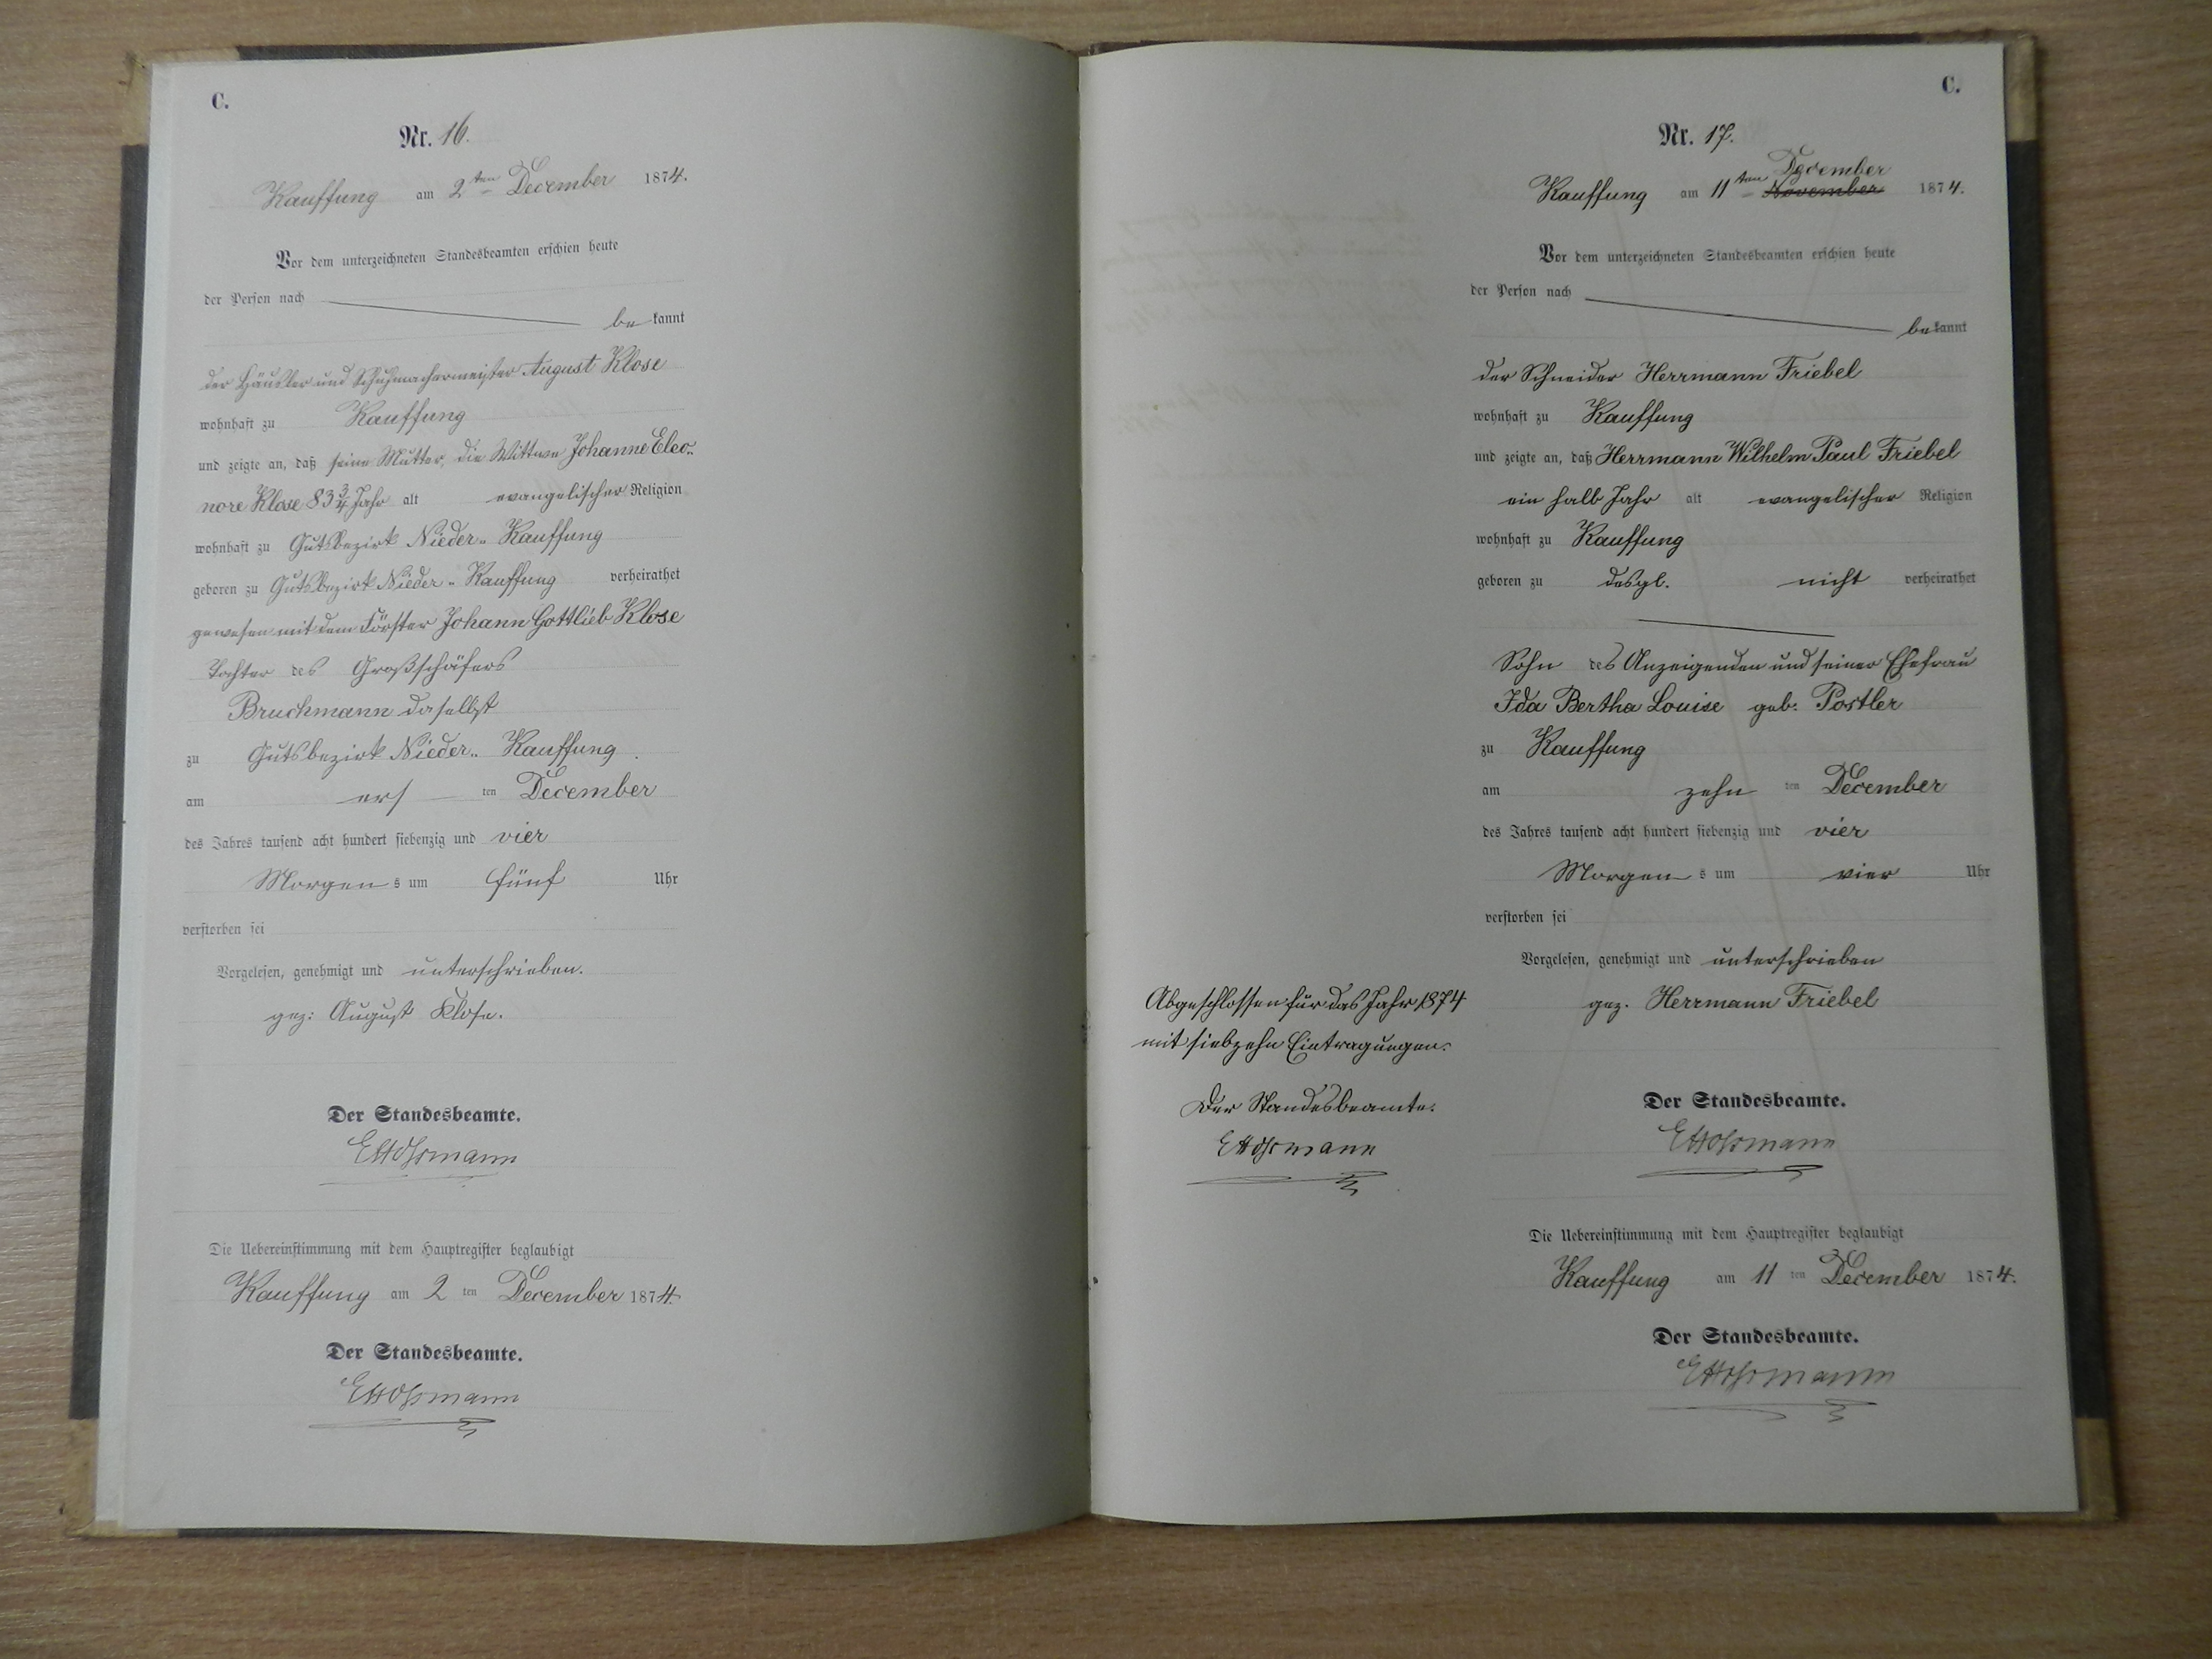 C.
Nr. 16.
Kauffung am 2ten December 1874.
Vor dem unterzeichneten Standesbeamten erschien heute
der Person nach
bekannt
der Häusler und Schuhmachermeister August Klose
wohnhaft zu Kauffung
und zeigte an, daß seine Mutter, die Wittwe Johanne Eleo-
nore Klose 83 3/4 Jahr alt evangelischer Religion
wohnhaft zu Gutsbezirk Nieder-Kauffung
geboren zu Gutsbezirk Nieder-Kauffung verheirathet
gewesen mit dem Förster Johann Gottlieb Klose
Tochter des Großschäfers
Bruchmann daselbst
zu Gutsbezirk Nieder-Kauffung
am ers ten December
des Jahres tausend acht hundert siebenzig und vier
Morgens um fünf Uhr
verstorben sei
Vorgelesen, genehmigt und unterschrieben.
gez: August Klose.
Der Standesbeamte.
Die Uebereinstimmung mit dem Hauptregister beglaubigt
Kauffung am 2 ten December 1874.
Der Standesbeamte.
C.
Nr. 17.
December
Kauffung am 11ten November 1874.
Vor dem unterzeichneten Standesbeamten erschien heute
der Person nach
bekannt
der Schneider Herrmann Friebel
wohnhaft zu Kauffung
und zeigte an, daß Herrmann Wilhelm Paul Friebel
ein halb Jahr alt evangelischer Religion
wohnhaft zu Kauffung
geboren zu desgl. nicht verheirathet
Sohn des Anzeigenden und seiner Ehefrau
Ida Bertha Louise geb. Postler
zu Kauffung
am zehn ten December
des Jahres tausend acht hundert siebenzig und vier
Morgens um vier Uhr
verstorben sei
Vorgelesen, genehmigt und unterschrieben
gez. Herrmann Friebel
Der Standesbeamte.
Die Uebereinstimmung mit dem Hauptregister beglaubigt
Kauffung am 11 ten December 1874.
Der Standesbeamte.
Abgeschlossen für das Jahr 1874
mit siebzehn Eintragungen.
Der Standesbeamte.